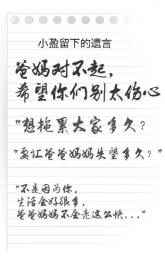 小盈留下的遺言
爸妈对不起，
希望你们别太伤心
"想拖累大家多久？
"要让爸爸妈妈失望多久？"
"不是因为你，
生活会好很多，
爸爸妈妈不会老这么快..."